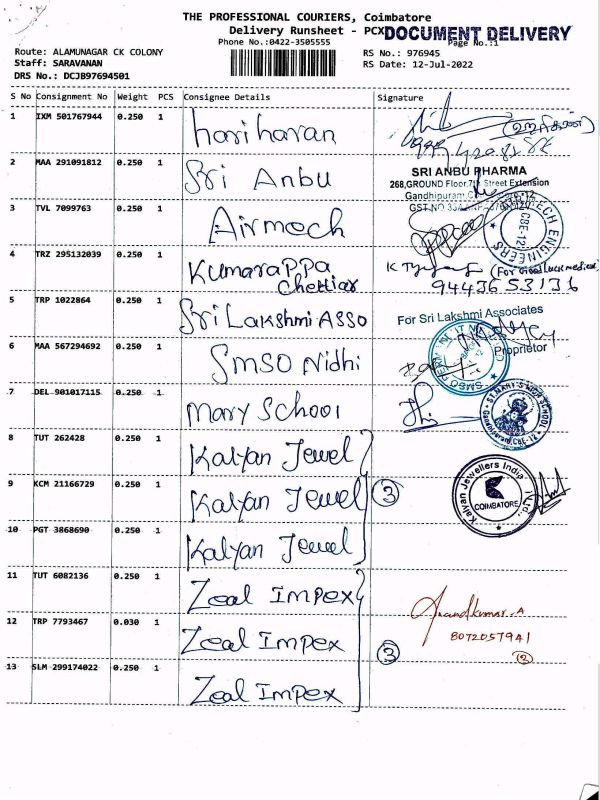 THE PROFESSIONAL COURIERS, Coimbatore
Delivery Runsheet - PCX DOCUMENT DELIVERY
Phone No.:0422-3505555 Page No.:1
Route: ALAMUNAGAR CK COLONY RS No.: 976945
Staff: SARAVANAN RS Date: 12-Jul-2022
DRS No.: DCJB97694501
S No Consignment No Weight PCS Consignee Details Signature
1 IXM 501767944 0.250 1 hariharan
2 MAA 291091812 0.250 1 Sri Anbu
SRI ANBU PHARMA
268,GROUND Floor,7th Street Extension
3 TVL 7099763 0.250 1 Airmech
CBE-12
4 TRZ 295132039 0.250 1 Kumarappa Chettiar
(For Good luck medical)
9443653136
5 TRP 1022864 0.250 1 Sri Lakshmi ASSO
For Sri Lakshmi Associates
Proprietor
6 MAA 567294692 0.250 1 SMSO Nidhi
7 DEL 901017115 0.250 1 Mary School
ST.MARY'S
8 TUT 262428 0.250 1 Kalyan Jewel
9 KCM 21166729 0.250 1 Kalyan Jewel 3
Kalyan Jewellers India Ltd.
COIMBATORE
10 PGT 3868690 0.250 1 Kalyan Jewel
11 TUT 6082136 0.250 1 Zeal Impex
Anandkumar.A
12 TRP 7793467 0.030 1 Zeal Impex 3
8072057941
13 SLM 299174022 0.250 1 Zeal Impex